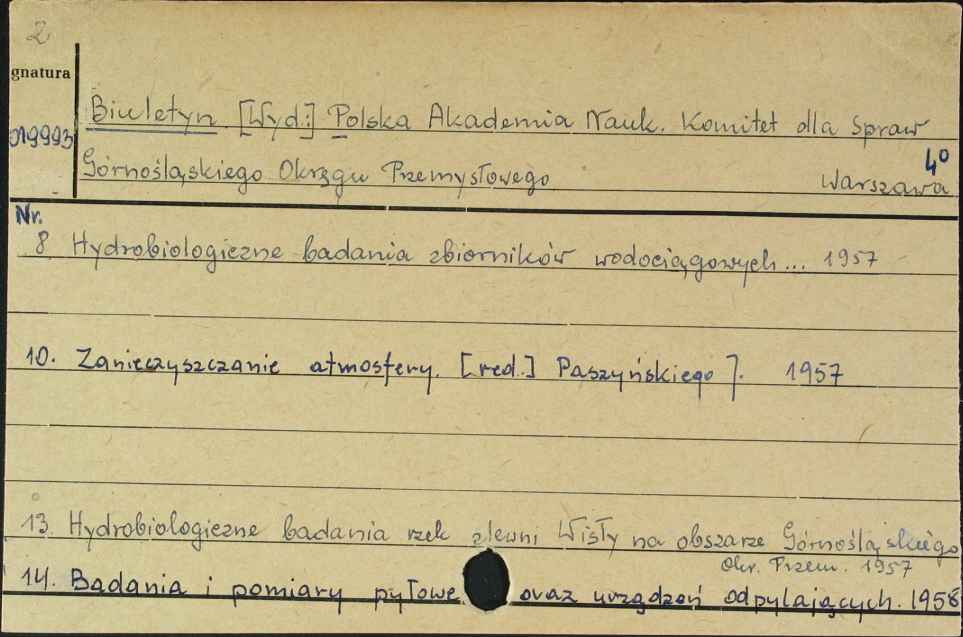 2
gnatura
Biuletyn. [Wyd:] Polska Akademia Nauk. Komitet dla Spraw
019993
4°
Górnośląskiego Okręgu Przemysłowego Warszawa
Nr.
8 Hydrobiologiczne badania zbiorników wodociągowych... 1957
10. Zanieczyszczanie atmosfery. [red.] Paszyńskiego J. 1957
13. Hydrobiologiczne badania rzek zlewni Wisły na obszarze Górnośląskiego
Okr. Przem. 1957
14. Badania i pomiary pyłowe oraz urządzeń odpylających. 1958